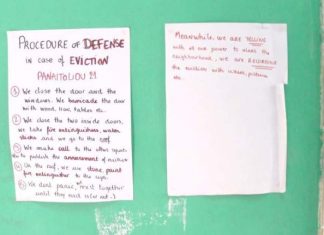 PROCEDURE of DEFENSE
in case of EVICTION
PANAITOLIOU !!
① We close the door and the
windows. We barricade the door
with wood, iron, tables etc.
② We close the two inside doors,
we take fire extinguishers, water
and we go to the roof
③ We make call to the other
to publish the announcement of
④ On the roof, we use stone, paint
fire extinguisher to the cops.
⑤ We dont panic, resist together
until they
Meanwhile, we are YELLING
with all our power to alert the
neighborhood, we are RECORDING
the eviction with videos, pictures
etc..